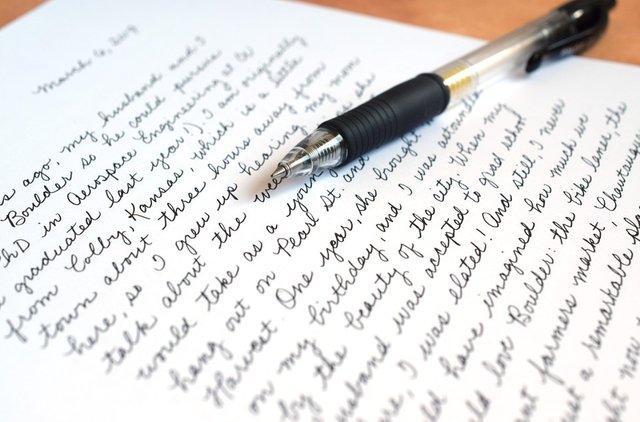 March 6, 2018
s ago. my husband and I
Boulder so he could pursue
PhD in Aerospace Engineering at CU
graduated last year!) I am originally
from Colby, Kansas, which is a little
town about three hours away from
here, so I grew up hearing my mom
talk about the she
would take as a young
hang out on Pearl St. and
Harvest. One year, she brought
on my birthday, and I was
by the beauty of the city. When my
husband was accepted to grad school
I was elated! And still, I never
have imagined how much we
love Boulder: the bike lanes, the
farmers market, Chautauqua
just a remarkable